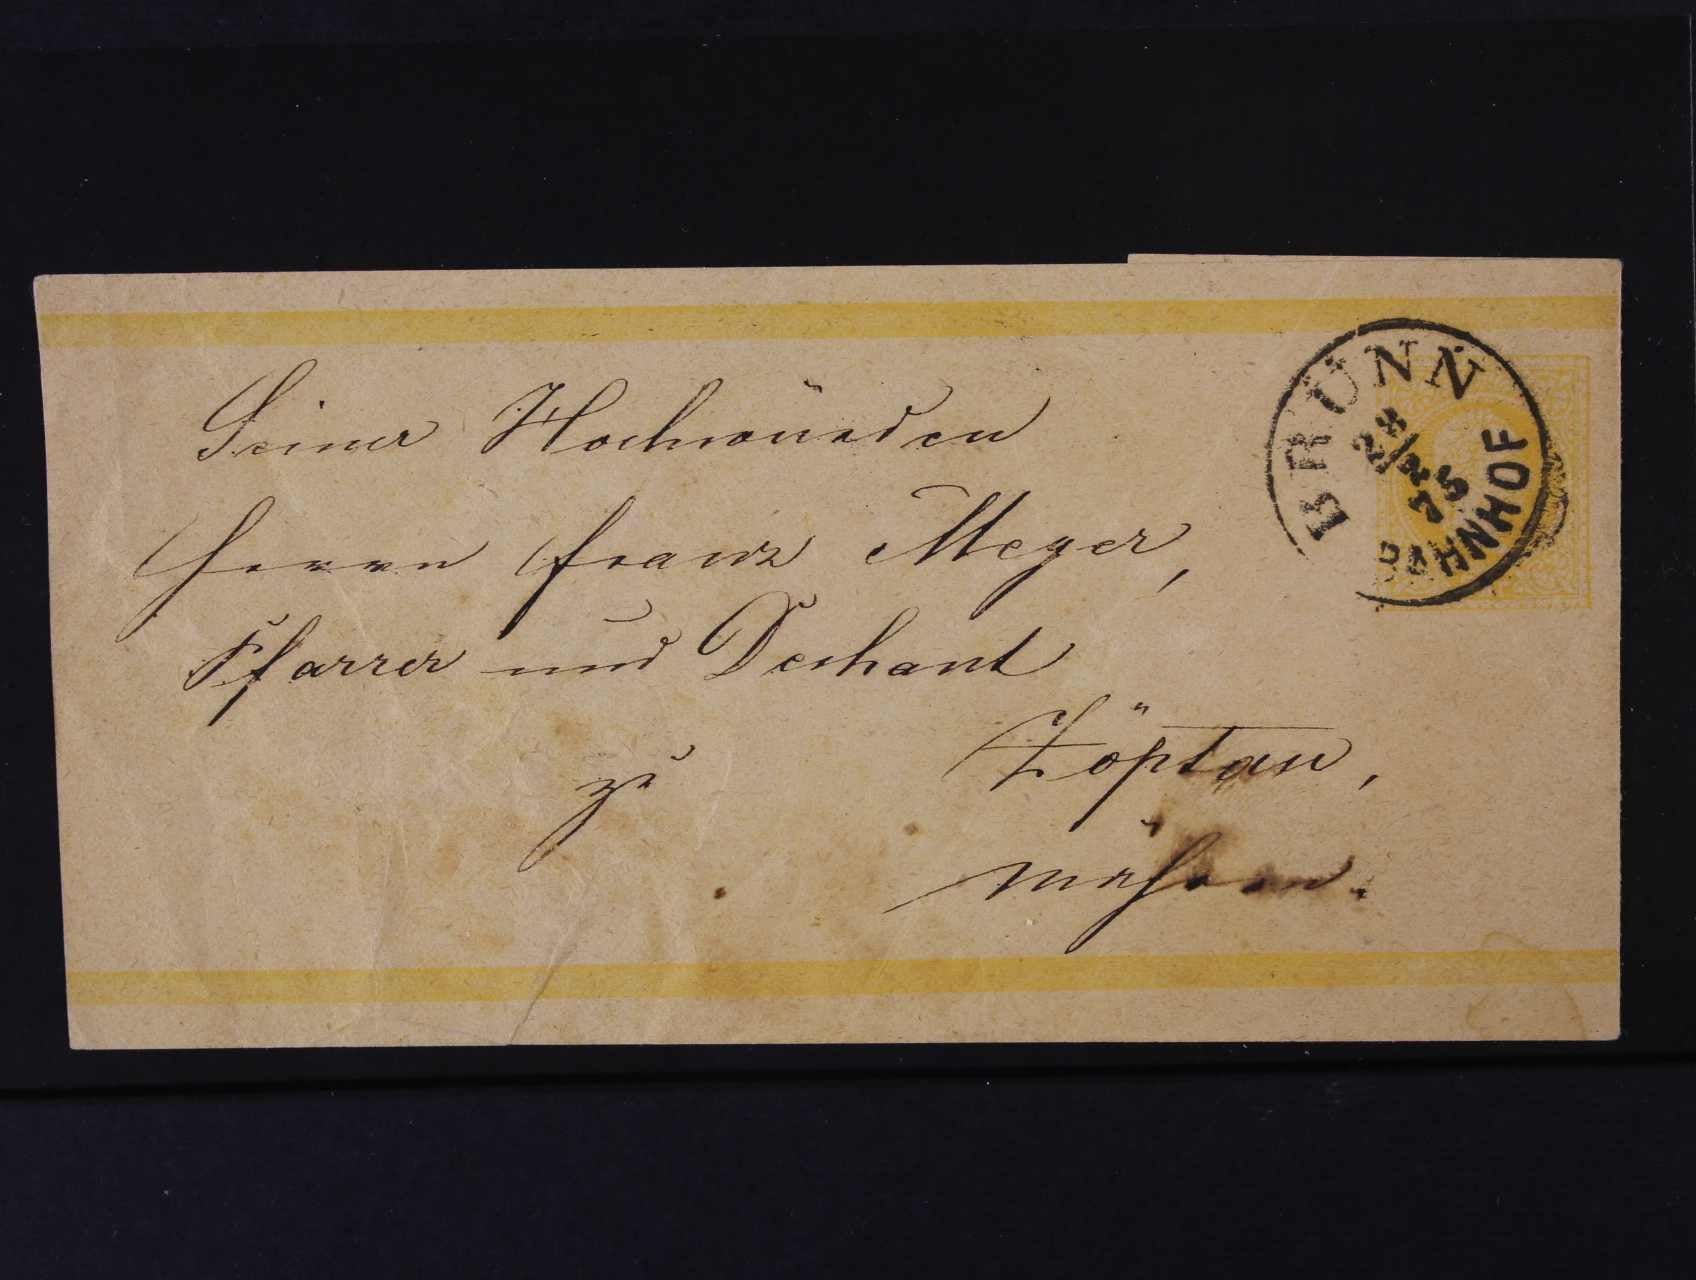 Seiner Hochwürden
Herrn Franz Meyer,
Pfarrer und Dechant
zu Zöptau,
Mähren.
BRÜNN
28/2
75
BAHNHOF